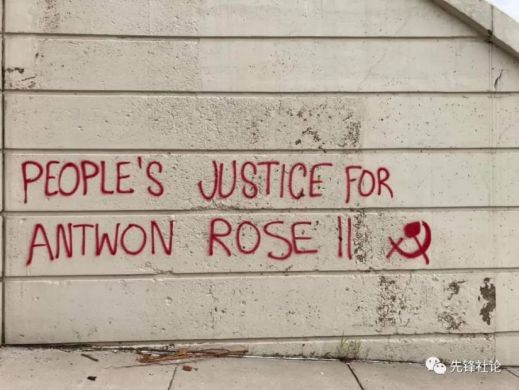 PEOPLE'S JUSTICE FOR
ANTWON ROSE II
先锋社论